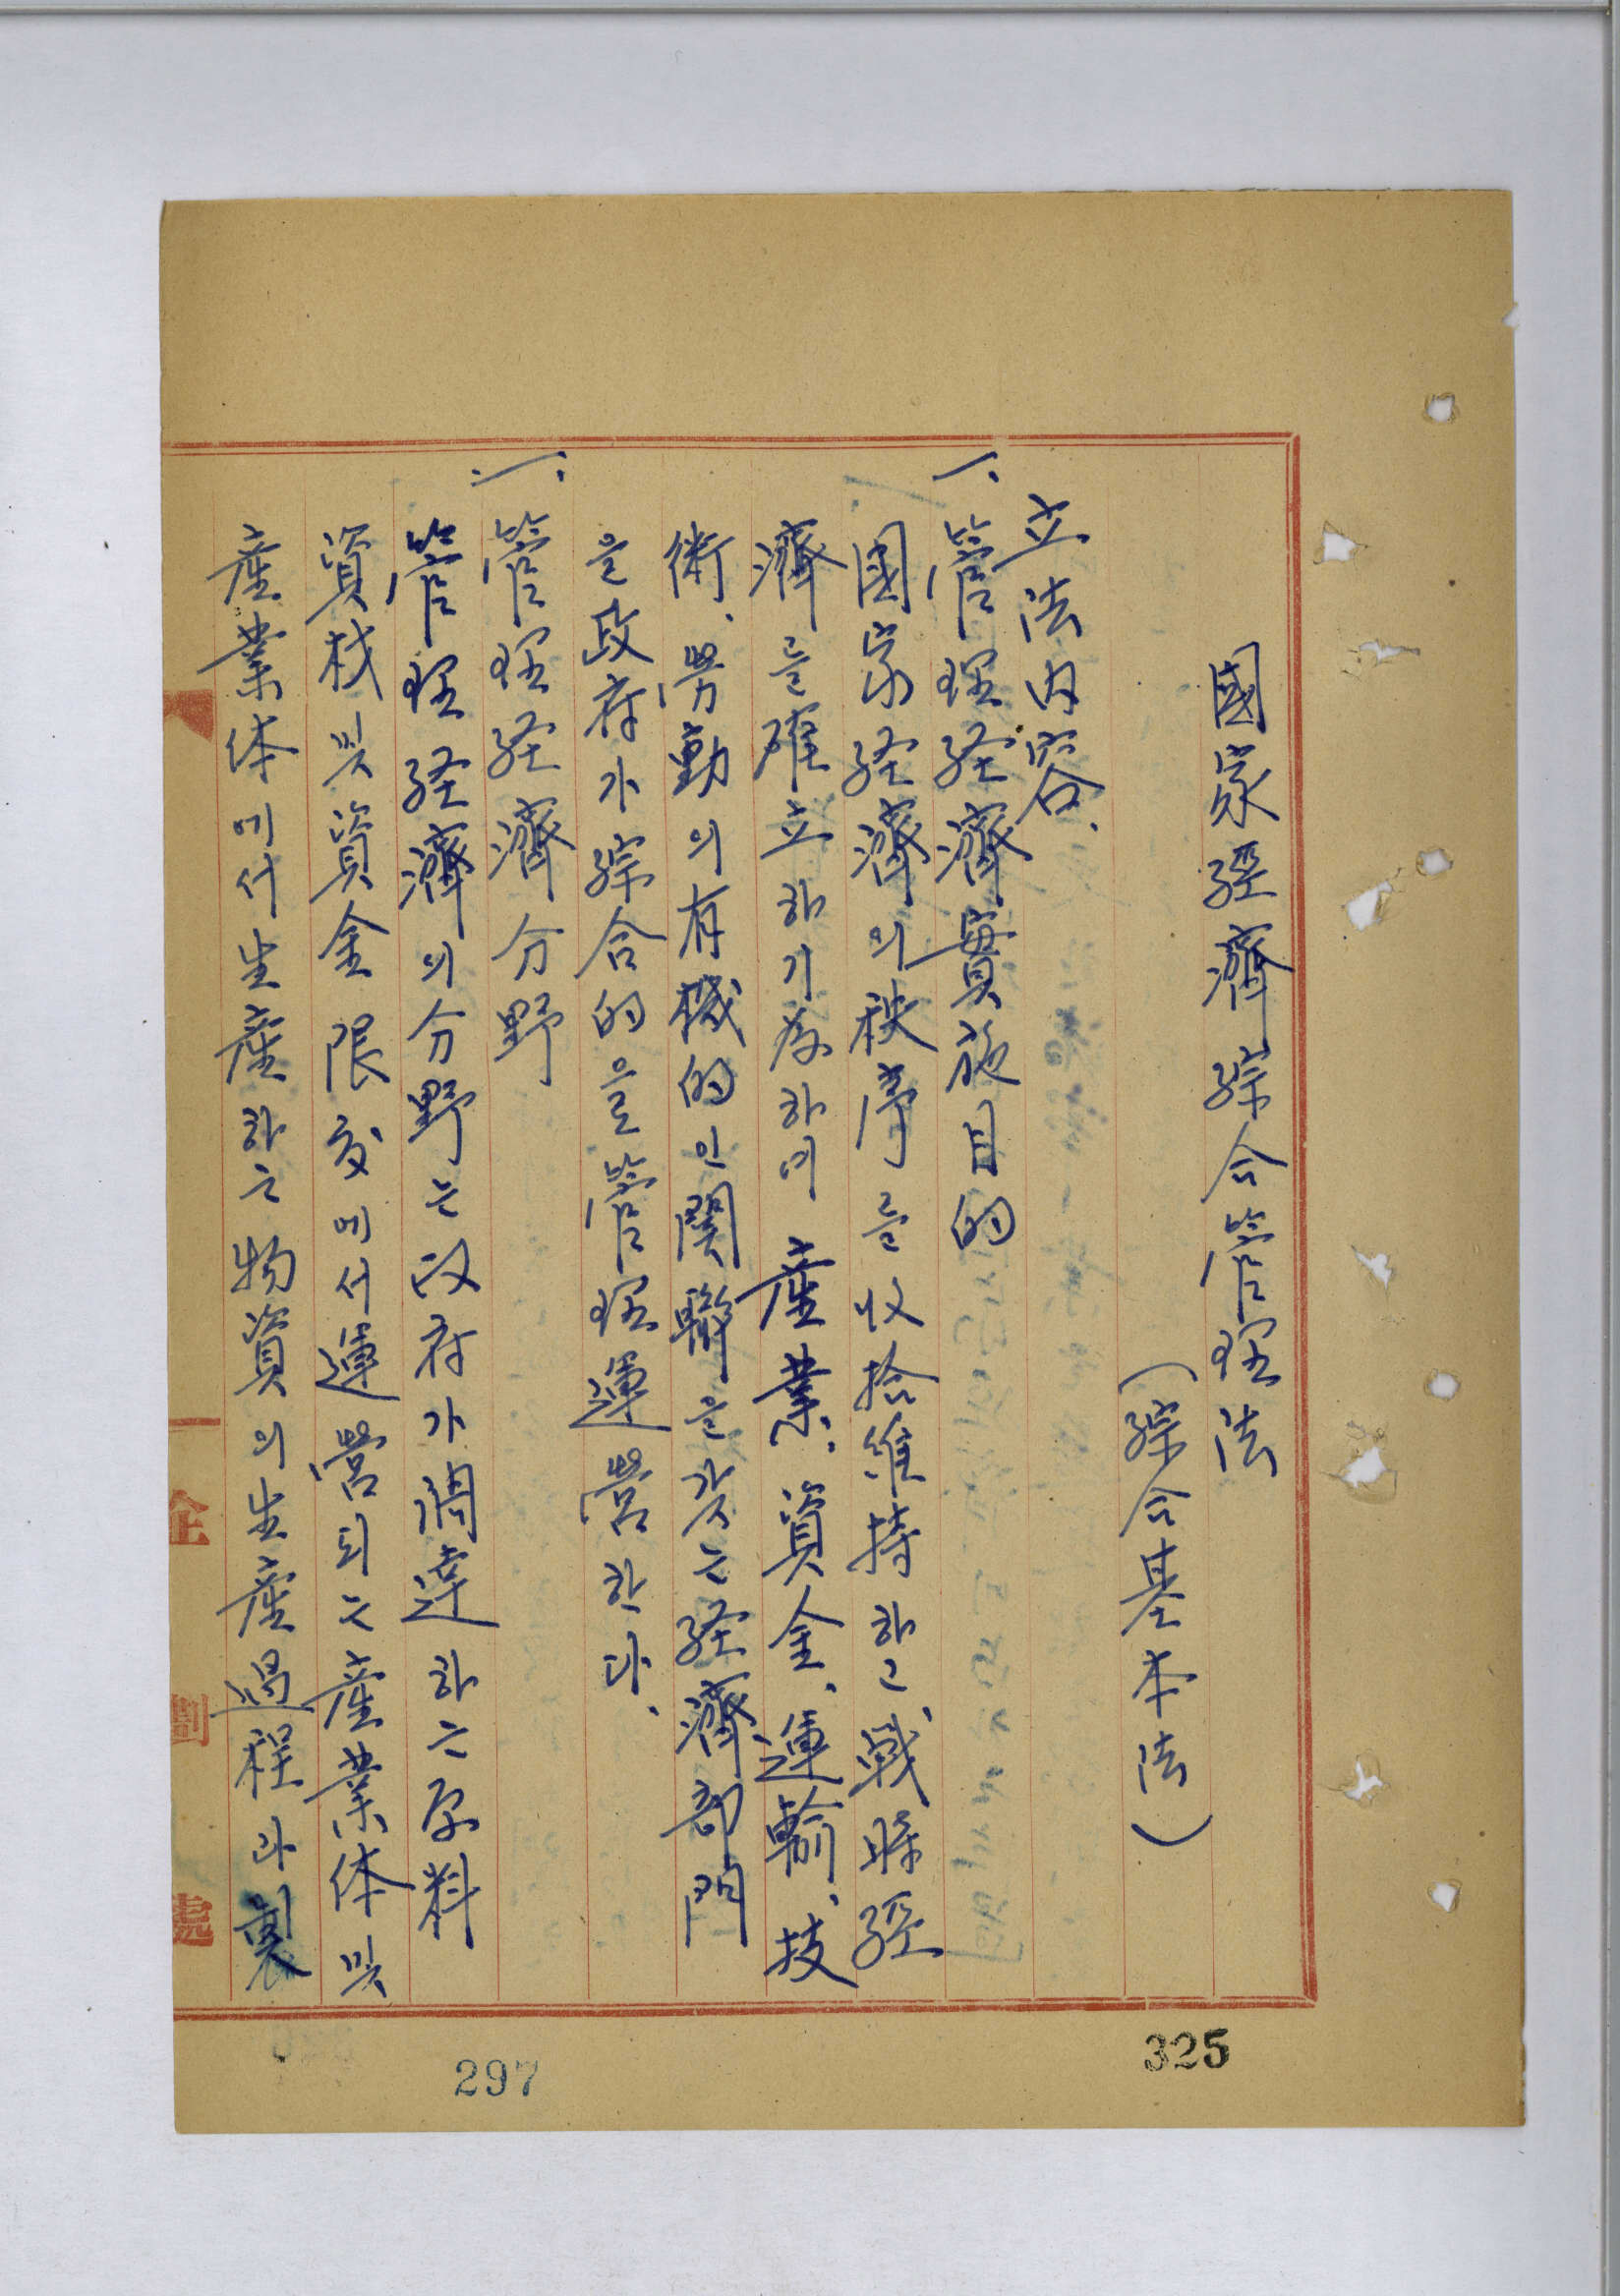 國家經濟綜合管理法
(綜合基本法)
立法內容、
一、管理経濟實施目的
國家経濟의秩序를收拾維持하고、戰時經
濟를確立하기爲하여 産業、資金、運輸、技
術、勞動의有機的인関聯을갖는経濟部門
을政府가綜合的을管理運營한다、
一、管理経濟分野
管理経濟의分野는政府가調達하는原料
資材및資金 限度에서運營되는産業体및
産業体에서生産하는物資의生産過程과
企劃處
325
297